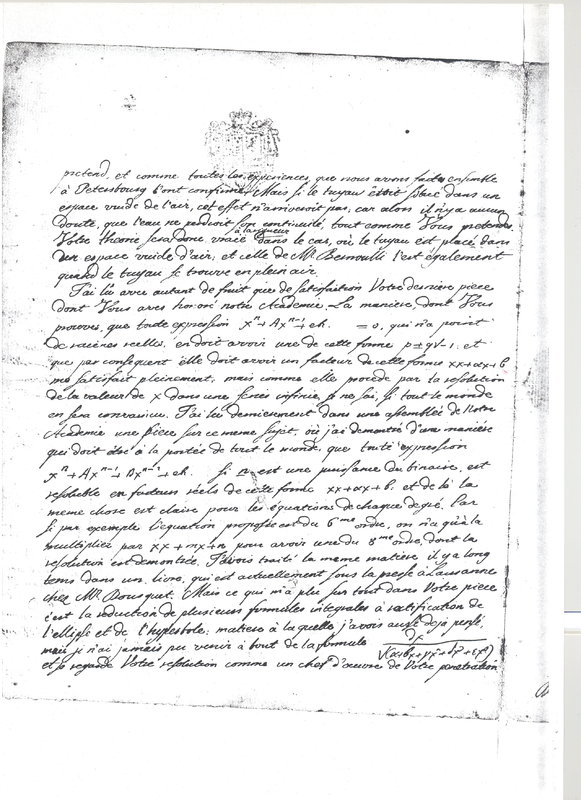 pretend, et comme toutes les experiences, que nous avons faites ensemble
à Petersbourg l'ont confirmé. Mais si le tuyau étoit situé dans un
espace vuide de l'air, cet effet n'arriveroit pas, car alors il n'y a aucun
doute, que l'eau ne perdroit son continuité, tout comme Vous pretendés.
Votre theorie sera donc vraie à la rigueur dans le cas, où le tuyau est placé dans
un espace vuide d'air; et celle de Mr. Bernoulli l'est également
quand le tuyau se trouve en plein air.
J'ai lû avec autant de fruit que de satisfaction Votre derniere piece
dont Vous avés honoré notre Academie. La maniere, dont Vous
prouvés, que toute expression x^n + Ax^{n-1} + etc. = 0, qui n'a point
de racines reelles, en doit avoir une de cette forme p ± q√-1, et
que par consequent elle doit avoir un facteur de cette forme xx + αx + β
me satisfait pleinement, mais comme elle procede par la resolution
de la valeur de x dans une serie infinie, je ne sai, si tout le monde
en sera convaincu. J'ai lû dernierement dans une assemblée de Notre
Academie une piece sur ce meme sujet, où j'ai demontré d'une maniére
qui doit être à la portée de tout le monde, que toute expression
x^n + Ax^{n-1} + Bx^{n-2} + etc. si n est une puissance du binaire, est
resoluble en facteurs réels de cette forme xx + αx + β, et de là la
meme chose est claire pour les équations de chaque degré. Car
si par exemple l'equation proposée est du 6me ordre, on n'a qu'à la
multiplier par xx + mx + n pour avoir une du 8me ordre, dont la
resolution est demontrée. J'avois traité la meme matiere il y a long
tems dans un livre, qui est actuellement sous la presse à Lausanne
chez Mr. Bousquet. Mais ce qui m'a plu sur tout dans Votre piece
c'est la reduction de plusieurs formules integrales à rectification de
l'ellipse et de l'hyperbole; matiere à la quelle j'avois aussi deja pensé,
mais je n'ai jamais pu venir à bout de la formule dx / √(α+βx+γx²+δx³+εx⁴)
et je regarde Votre resolution comme un chef d'œuvre de Votre penetration